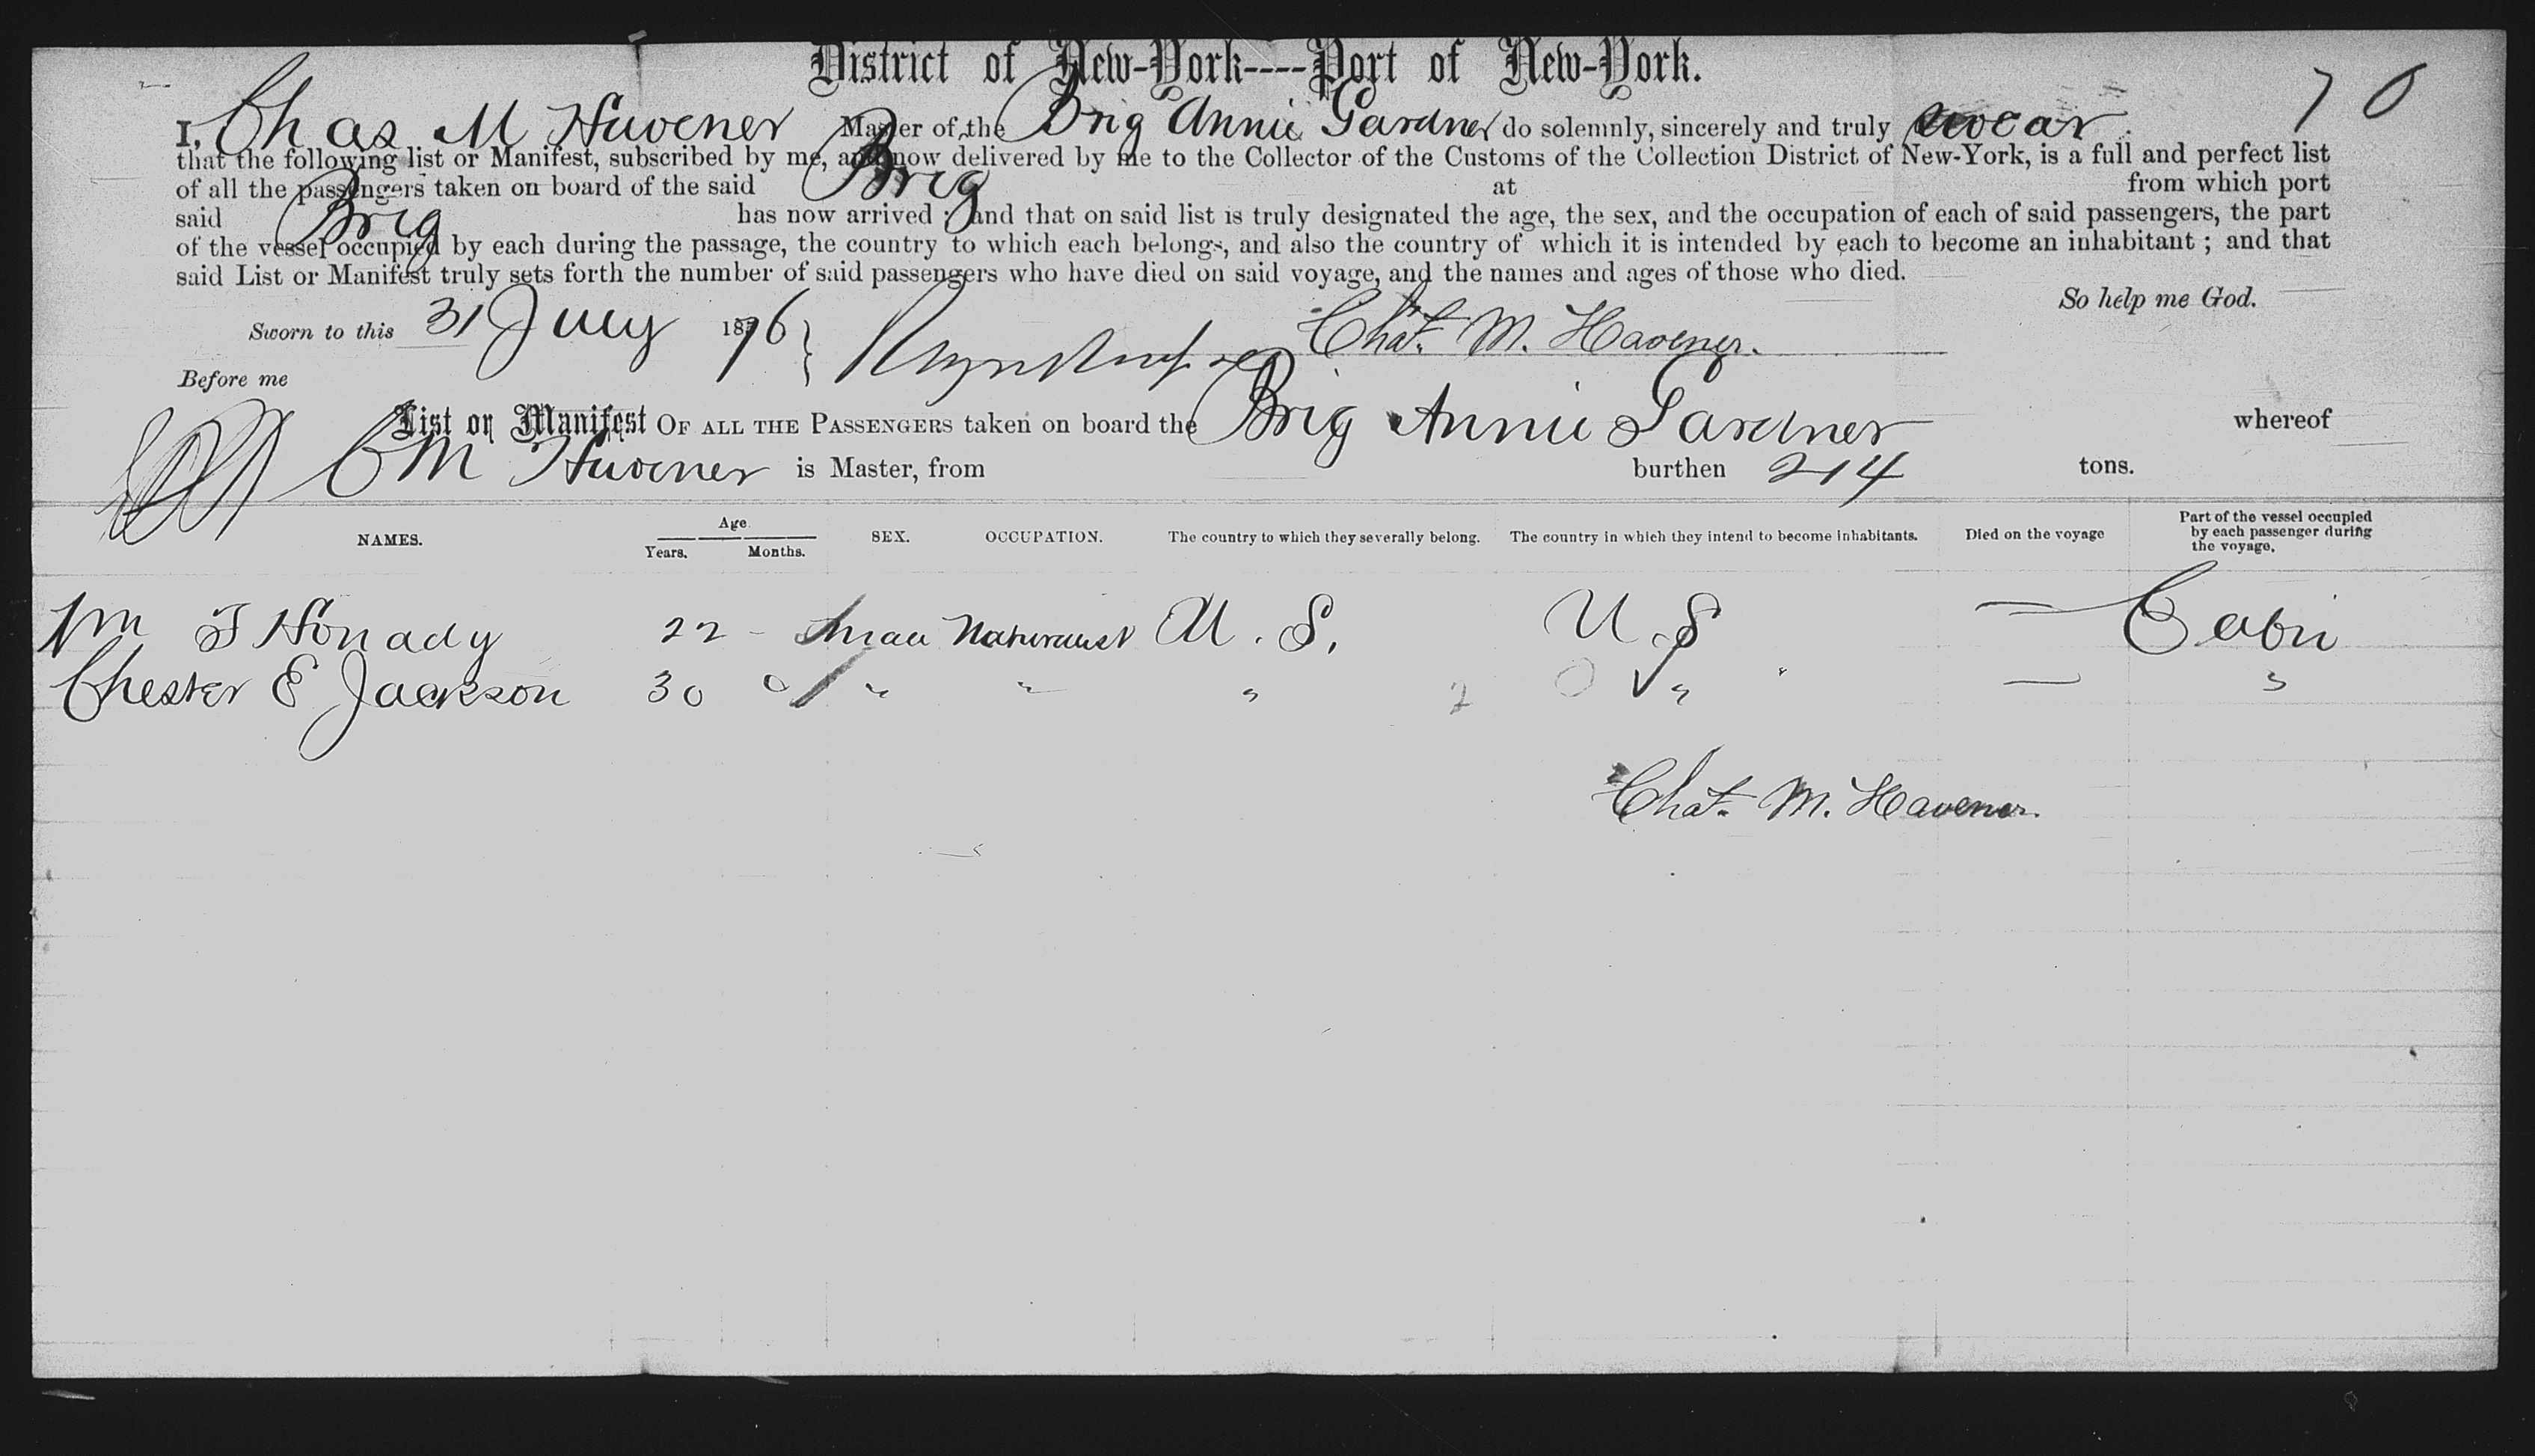 District of New-York----Port of New-York.
7 0
I, Chas M Havener Master of the Brig Annie Gardner do solemnly, sincerely and truly swear
that the following list or Manifest, subscribed by me, and now delivered by me to the Collector of the Customs of the Collection District of New-York, is a full and perfect list
of all the passengers taken on board of the said Brig at from which port
said Brig has now arrived ; and that on said list is truly designated the age, the sex, and the occupation of each of said passengers, the part
of the vessel occupied by each during the passage, the country to which each belongs, and also the country of which it is intended by each to become an inhabitant ; and that
said List or Manifest truly sets forth the number of said passengers who have died on said voyage, and the names and ages of those who died.
So help me God.
Sworn to this 31 July 1876 } Chas. M. Havener.
Before me
List or Manifest OF ALL THE PASSENGERS taken on board the Brig Annie Gardner whereof
C M Havener is Master, from burthen 214 tons.
NAMES. Age Years. Months. SEX. OCCUPATION. The country to which they severally belong. The country in which they intend to become inhabitants. Died on the voyage Part of the vessel occupied by each passenger during the voyage.
Wm T Honaday 22 - Male Naturalist U. S. U S — Cabin
Chester E Jackson 30 " " " 2 0 ✓ " — "
Chas. M. Havener.